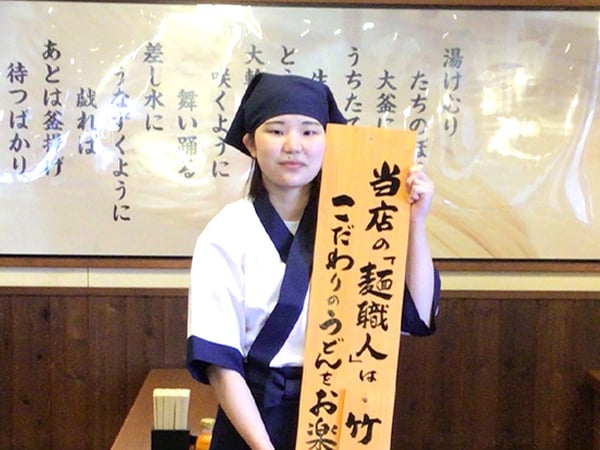 湯けむり
たちのぼ
大釜に
うちたて
生
と
大輪
咲くように
舞い踊る
差し水に
うなずくように
戯れは
あとは釜揚げ
待つばかり
当店の「麺職人」は、竹
こだわりのうどんをお楽